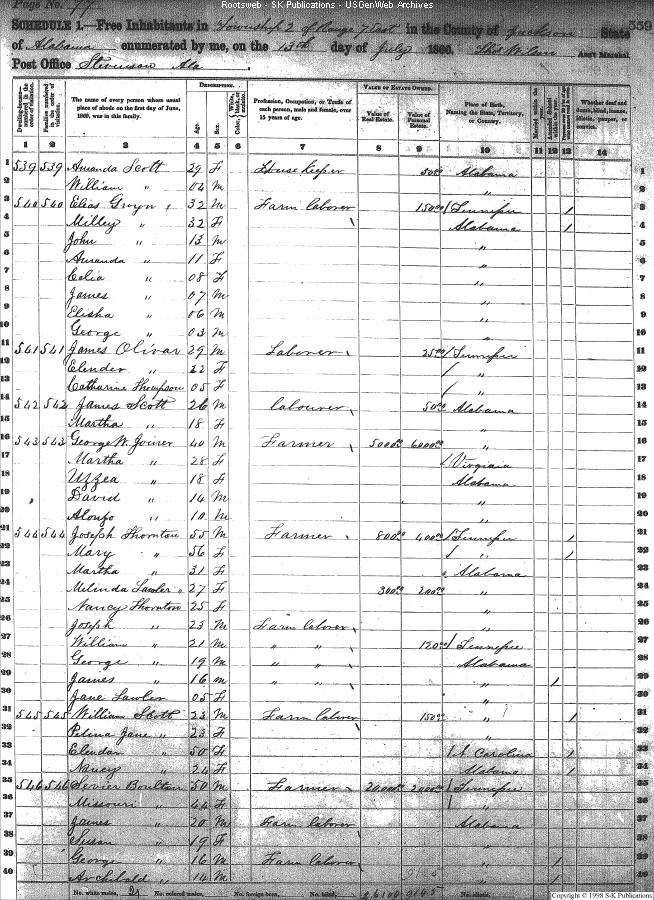 Rootsweb - SK Publications - USGenWeb Archives
Page No. 77
SCHEDULE 1.—Free Inhabitants in Township 2 of Range 7 East in the County of Jackson State 559
of Alabama enumerated by me, on the 13th day of July 1860. Ass't Marshal.
Post Office Stevenson Ala
Dwelling-houses—numbered in the order of visitation.
Families numbered in the order of visitation.
The name of every person whose usual place of abode on the first day of June, 1860, was in this family.
DESCRIPTION.
Age.
Sex.
Profession, Occupation, or Trade of each person, male and female, over 15 years of age.
VALUE OF ESTATE OWNED.
Value of Real Estate.
Value of Personal Estate.
Place of Birth, Naming the State, Territory, or Country.
Whether deaf and dumb, blind, insane, idiotic, pauper, or convict.
1 2 3 4 5 6 7 8 9 10 11 12 13 14
1 539 539 Amanda Scott 29 F House Keeper 50.00 Alabama 1
2 William " 04 M " 2
3 540 540 Elias Gwyn 32 M Farm laborer 150.00 / Tennessee / 3
4 Milley " 32 F Alabama / 4
5 John " 13 M " 5
6 Amanda " 11 F " 6
7 Celia " 08 F " 7
8 James " 07 M " 8
9 Elisha " 06 M " 9
10 George " 03 M " 10
11 541 541 James Olivar 29 M Laborer 25.00 / Tennessee 11
12 Elender " 22 F / " 12
13 Catharine Thompson 05 F / " 13
14 542 542 James Scott 26 M labourer 50.00 Alabama 14
15 Martha " 18 F " 15
16 543 543 George W. Joiner 40 M Farmer 5000.00 6000.00 " 16
17 Martha " 28 F / Virginia 17
18 Uzzea " 18 F Alabama 18
19 David " 14 M " 19
20 Alonfo " 10 M " 20
21 544 544 Joseph Thornton 55 M Farmer 800.00 400.00 / Tennessee / 21
22 Mary " 56 F / " / 22
23 Martha " 31 F Alabama 23
24 Melinda Lawler 27 F 300.00 200.00 " 24
25 Nancy Thornton 25 F " 25
26 Joseph " 23 M Farm laborer " 26
27 William " 21 M " " 120.00 / Tennessee 27
28 George " 19 M " " Alabama 28
29 James " 16 M " " " / 29
30 Jane Lawler 05 F " 30
31 545 545 William Scott 23 M Farm laborer 150.00 " / 31
32 Pelina Jane " 23 F " 32
33 Elendar " 50 F / N Carolina / 33
34 Nancy " 24 F Alabama / 34
35 546 546 Sevier Boulton 50 M Farmer 20000.00 2000.00 / Tennessee 35
36 Missouri " 44 F / " 36
37 James " 20 M Farm laborer Alabama 37
38 Susan " 19 F " 38
39 George " 16 M Farm laborer " / 39
40 Archibald " 14 M " / 40
No. white males, 21 No. colored males, No. foreign born, No. blind, 26100 9145 No. idiotic,
Copyright © 1998 S-K Publications